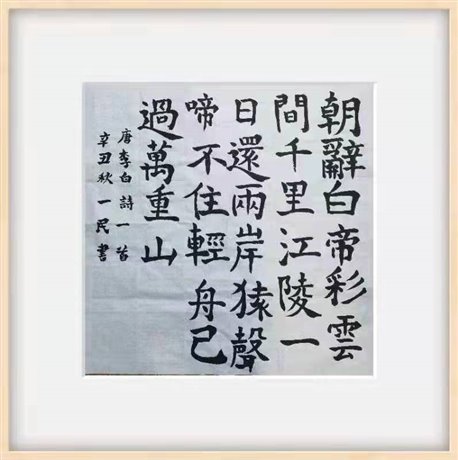 朝辭白帝彩雲
間千里江陵一
日還兩岸猿聲
啼不住輕舟已
過萬重山
唐李白詩一首
辛丑秋一民書